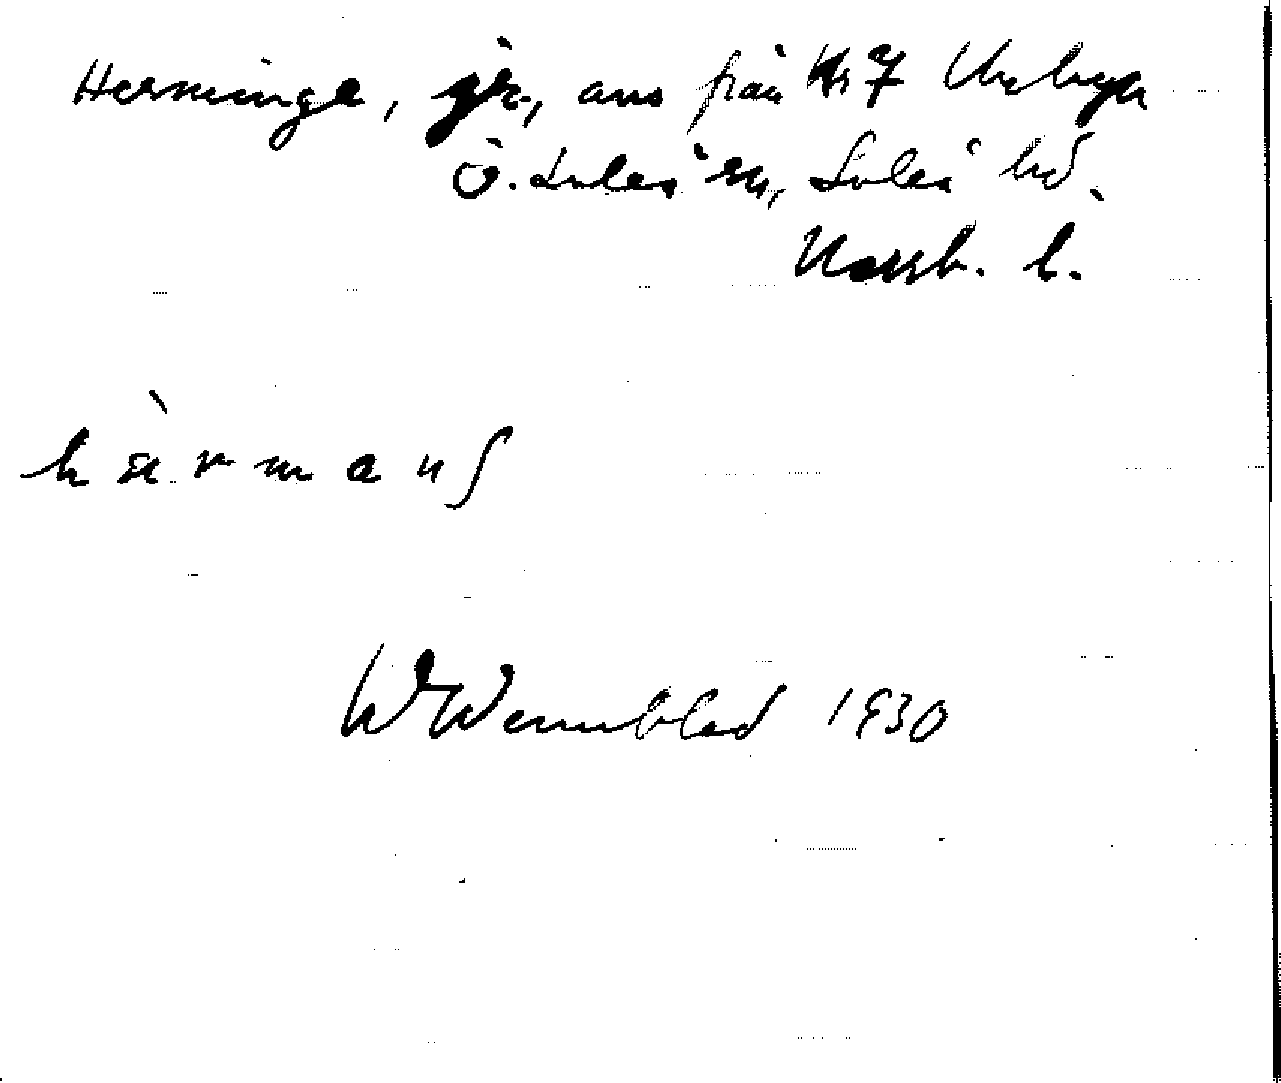 Herminge, gr., ans från Nr 7 Unbyn
Ö. Luleå sn, Luleå hd.
Norrb. l.
hä̀rmanʃ
W Wennblad 1930